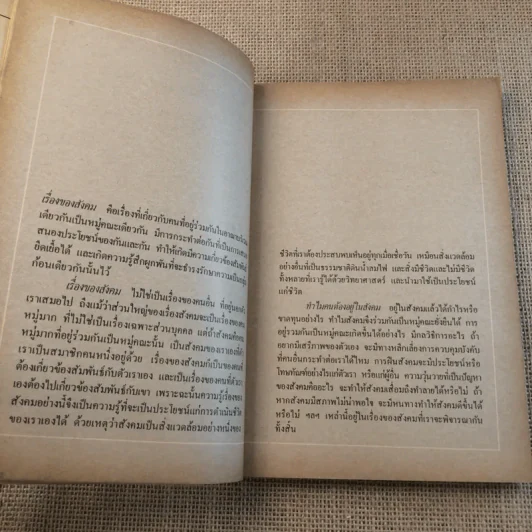 เรื่องของสังคม คือเรื่องที่เกี่ยวกับคนที่อยู่ร่วมกันในอาณาบริเวณ
เดียวกันเป็นหมู่คณะเดียวกัน มีการกระทำต่อกันที่เป็นการตอบ
สนองประโยชน์ของกันและกัน ทำให้เกิดมีความเกี่ยวข้องสัมพันธ์
ยึดเยื้อได้ และเกิดความรู้สึกผูกพันที่จะธำรงรักษาความเป็นกลุ่ม
ก้อนเดียวกันนั้นไว้
เรื่องของสังคม ไม่ใช่เป็นเรื่องของคนอื่น ที่อยู่นอกตัว
เราเสมอไป ถึงแม้ว่าส่วนใหญ่ของเรื่องสังคมจะเป็นเรื่องของคน
หมู่มาก ที่ไม่ใช่เป็นเรื่องเฉพาะส่วนบุคคล แต่ถ้าสังคมคือคน
หมู่มากที่อยู่ร่วมกันเป็นหมู่คณะนั้น เป็นสังคมของเราเองที่มี
เราเป็นสมาชิกคนหนึ่งอยู่ด้วย เรื่องของสังคมก็เป็นของตนที่
ต้องเกี่ยวข้องสัมพันธ์กับตัวเราเอง และเป็นเรื่องของคนที่ตัวเรา
เองต้องไปเกี่ยวข้องสัมพันธ์กับเขา เพราะฉะนั้นความรู้เรื่องของ
สังคมอย่างนี้จึงเป็นความรู้ที่จะเป็นประโยชน์แก่การดำเนินชีวิต
ของเราเองได้ ด้วยเหตุว่าสังคมเป็นสิ่งแวดล้อมอย่างหนึ่งของ
ชีวิตที่เราต้องประสบพบเห็นอยู่ทุกเมื่อเชื่อวัน เหมือนสิ่งแวดล้อม
อย่างอื่นที่เป็นธรรมชาติดินน้ำลมไฟ และสิ่งมีชีวิตและไม่มีชีวิต
ทั้งหลายที่เรารู้ได้ด้วยวิทยาศาสตร์ และนำมาใช้เป็นประโยชน์
แก่ชีวิต
ทำไมคนต้องอยู่ในสังคม อยู่ในสังคมแล้วได้กำไรหรือ
ขาดทุนอย่างไร ทำไมสังคมจึงร่วมกันเป็นหมู่คณะยั่งยืนได้ การ
อยู่ร่วมกันเป็นหมู่คณะเกิดขึ้นได้อย่างไร มีกลวิธีการอะไร ถ้า
อยากมีเสรีภาพของตัวเอง จะมีทางหลีกเลี่ยงการควบคุมบังคับ
ที่คนอื่นกระทำต่อเราได้ไหม การฝืนสังคมจะมีประโยชน์หรือ
โทษภัยอย่างไรแก่ตัวเรา หรือแก่ผู้อื่น ความวุ่นวายที่เป็นปัญหา
ของสังคมคืออะไร จะทำให้สังคมเสื่อมถึงทำลายได้หรือไม่ ถ้า
หากสังคมมีสภาพไม่น่าพอใจ จะมีหนทางทำให้สังคมดีขึ้นได้
หรือไม่ ฯลฯ เหล่านี้อยู่ในเรื่องของสังคมที่เราจะพิจารณากัน
ทั้งสิ้น